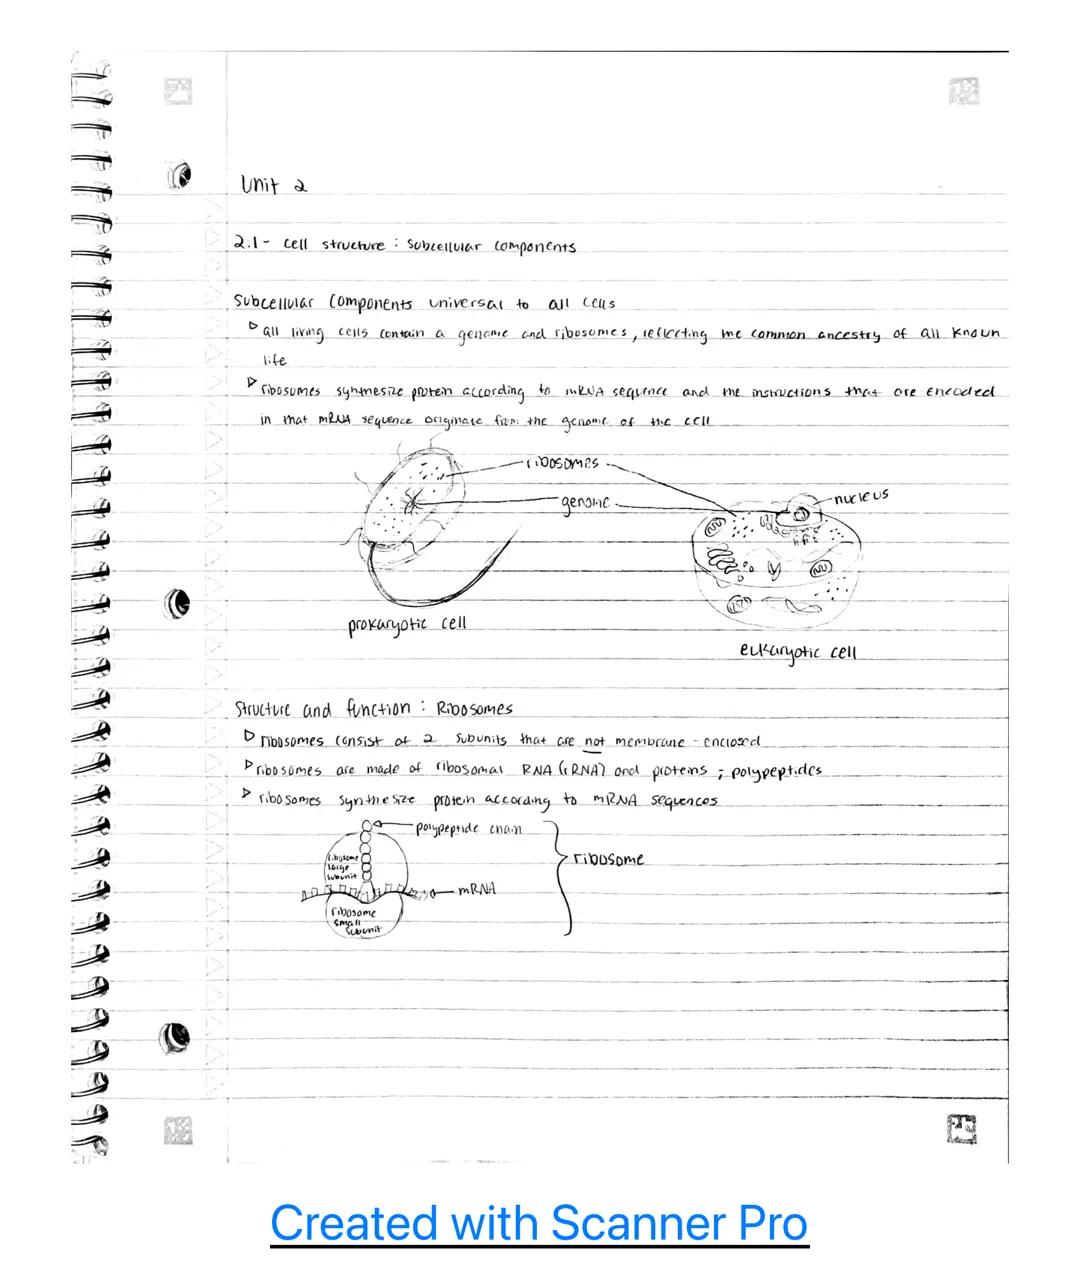 Unit 2
2.1- cell structure : subcellular components
Subcellular components universal to all cells
▷ all living cells contain a genome and ribosomes, reflecting the common ancestry of all known
life
▷ ribosomes synthesize protein according to mRNA sequence and the instructions that are encoded
in that mRNA sequence originate from the genome of the cell
ribosomes
genome
nucleus
prokaryotic cell
eukaryotic cell
Structure and function : Ribosomes
▷ ribosomes consist of 2 subunits that are not membrane-enclosed
▷ ribosomes are made of ribosomal RNA (rRNA) and proteins ; polypeptides
▷ ribosomes synthesize protein according to mRNA sequences
polypeptide chain
ribosome
large
subunit
ribosome
mRNA
ribosome
small
subunit
Created with Scanner Pro